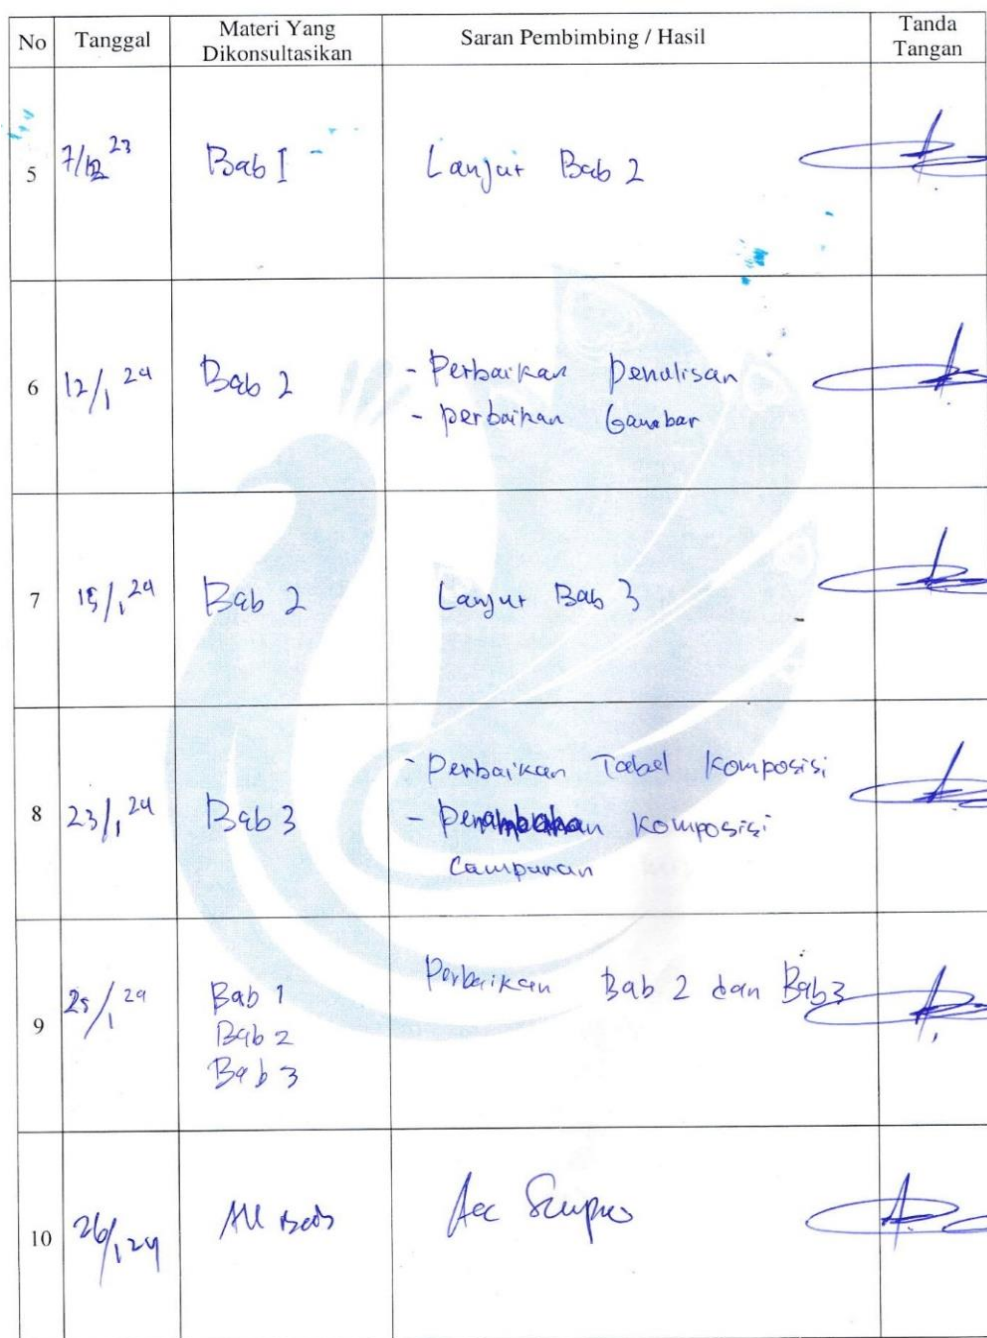 No Tanggal Materi Yang Dikonsultasikan Saran Pembimbing / Hasil Tanda Tangan
5 7/12 23 Bab I Lanjut Bab 2
6 12/1 24 Bab 2 - Perbaikan Penulisan
- perbaikan Gambar
7 15/1 24 Bab 2 Lanjut Bab 3
8 23/1 24 Bab 3 - Perbaikan Tabel Komposisi
- Penambahan Komposisi
Campuran
9 25/1 24 Bab 1 Perbaikan Bab 2 dan Bab 3
Bab 2
Bab 3
10 26/1 24 All Bab Acc Sempro